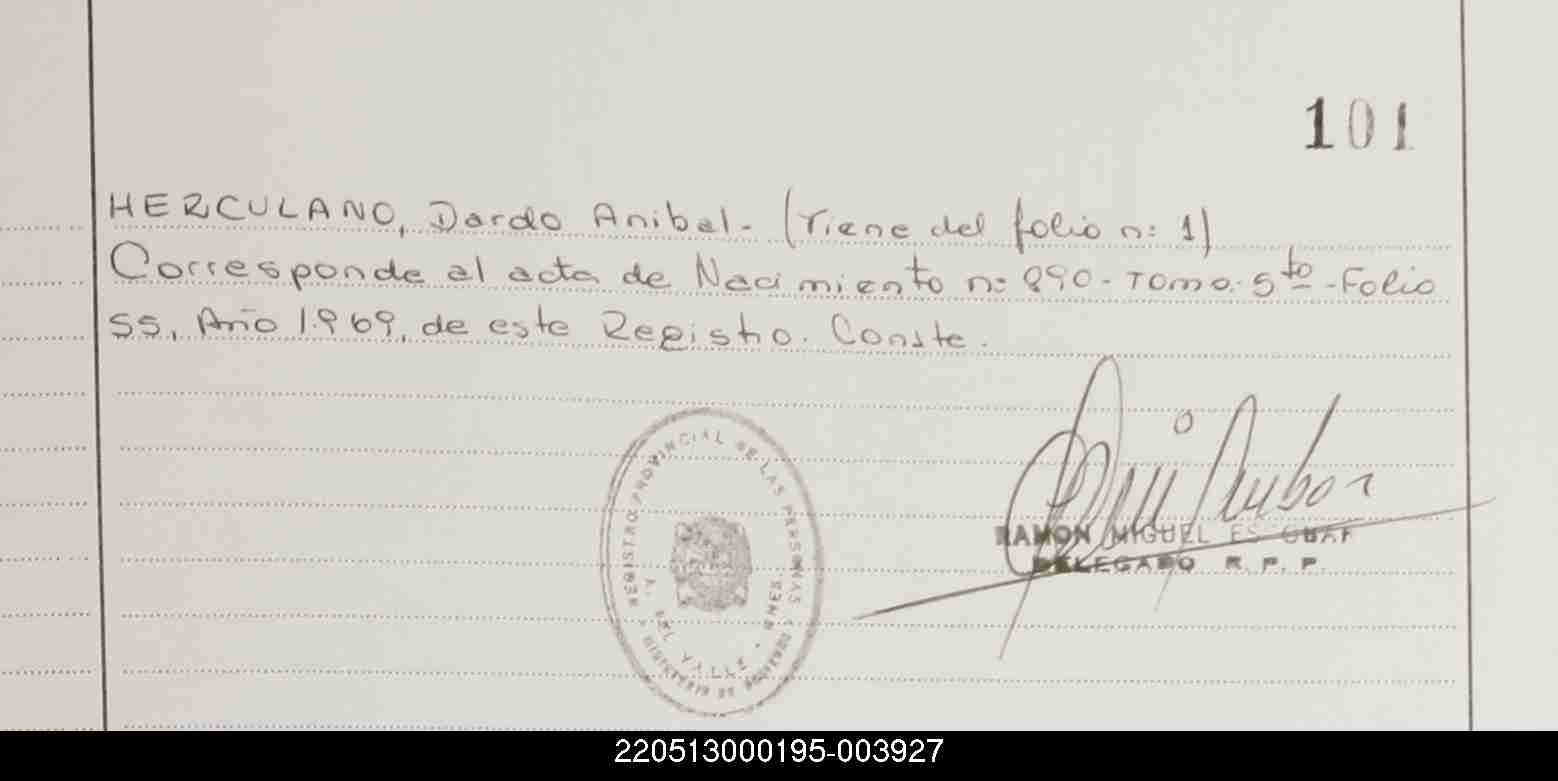 101
HERCULANO, Dardo Anibal - (Viene del folio n: 1)
Corresponde al acta de Nacimiento n: 890 - Tomo. 5to - Folio
55, Año 1.969, de este Registro. Conste.
REGISTRO PROVINCIAL DE LAS PERSONAS
MINISTERIO DE GOBIERNO
DEL VALLE
RAMON MIGUEL
DELEGADO R. P. P.
220513000195-003927